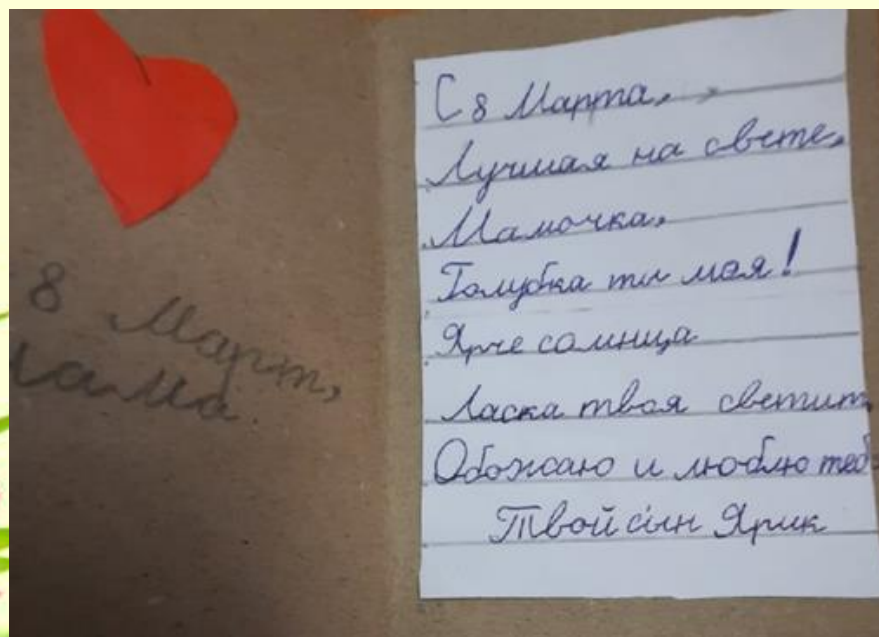 8 Март,
Мама
С 8 Марта,
Лучшая на свете,
Мамочка,
Голубка ты моя!
Ярче солнца
Ласка твоя светит,
Обожаю и люблю теб
Твой сын Ярик